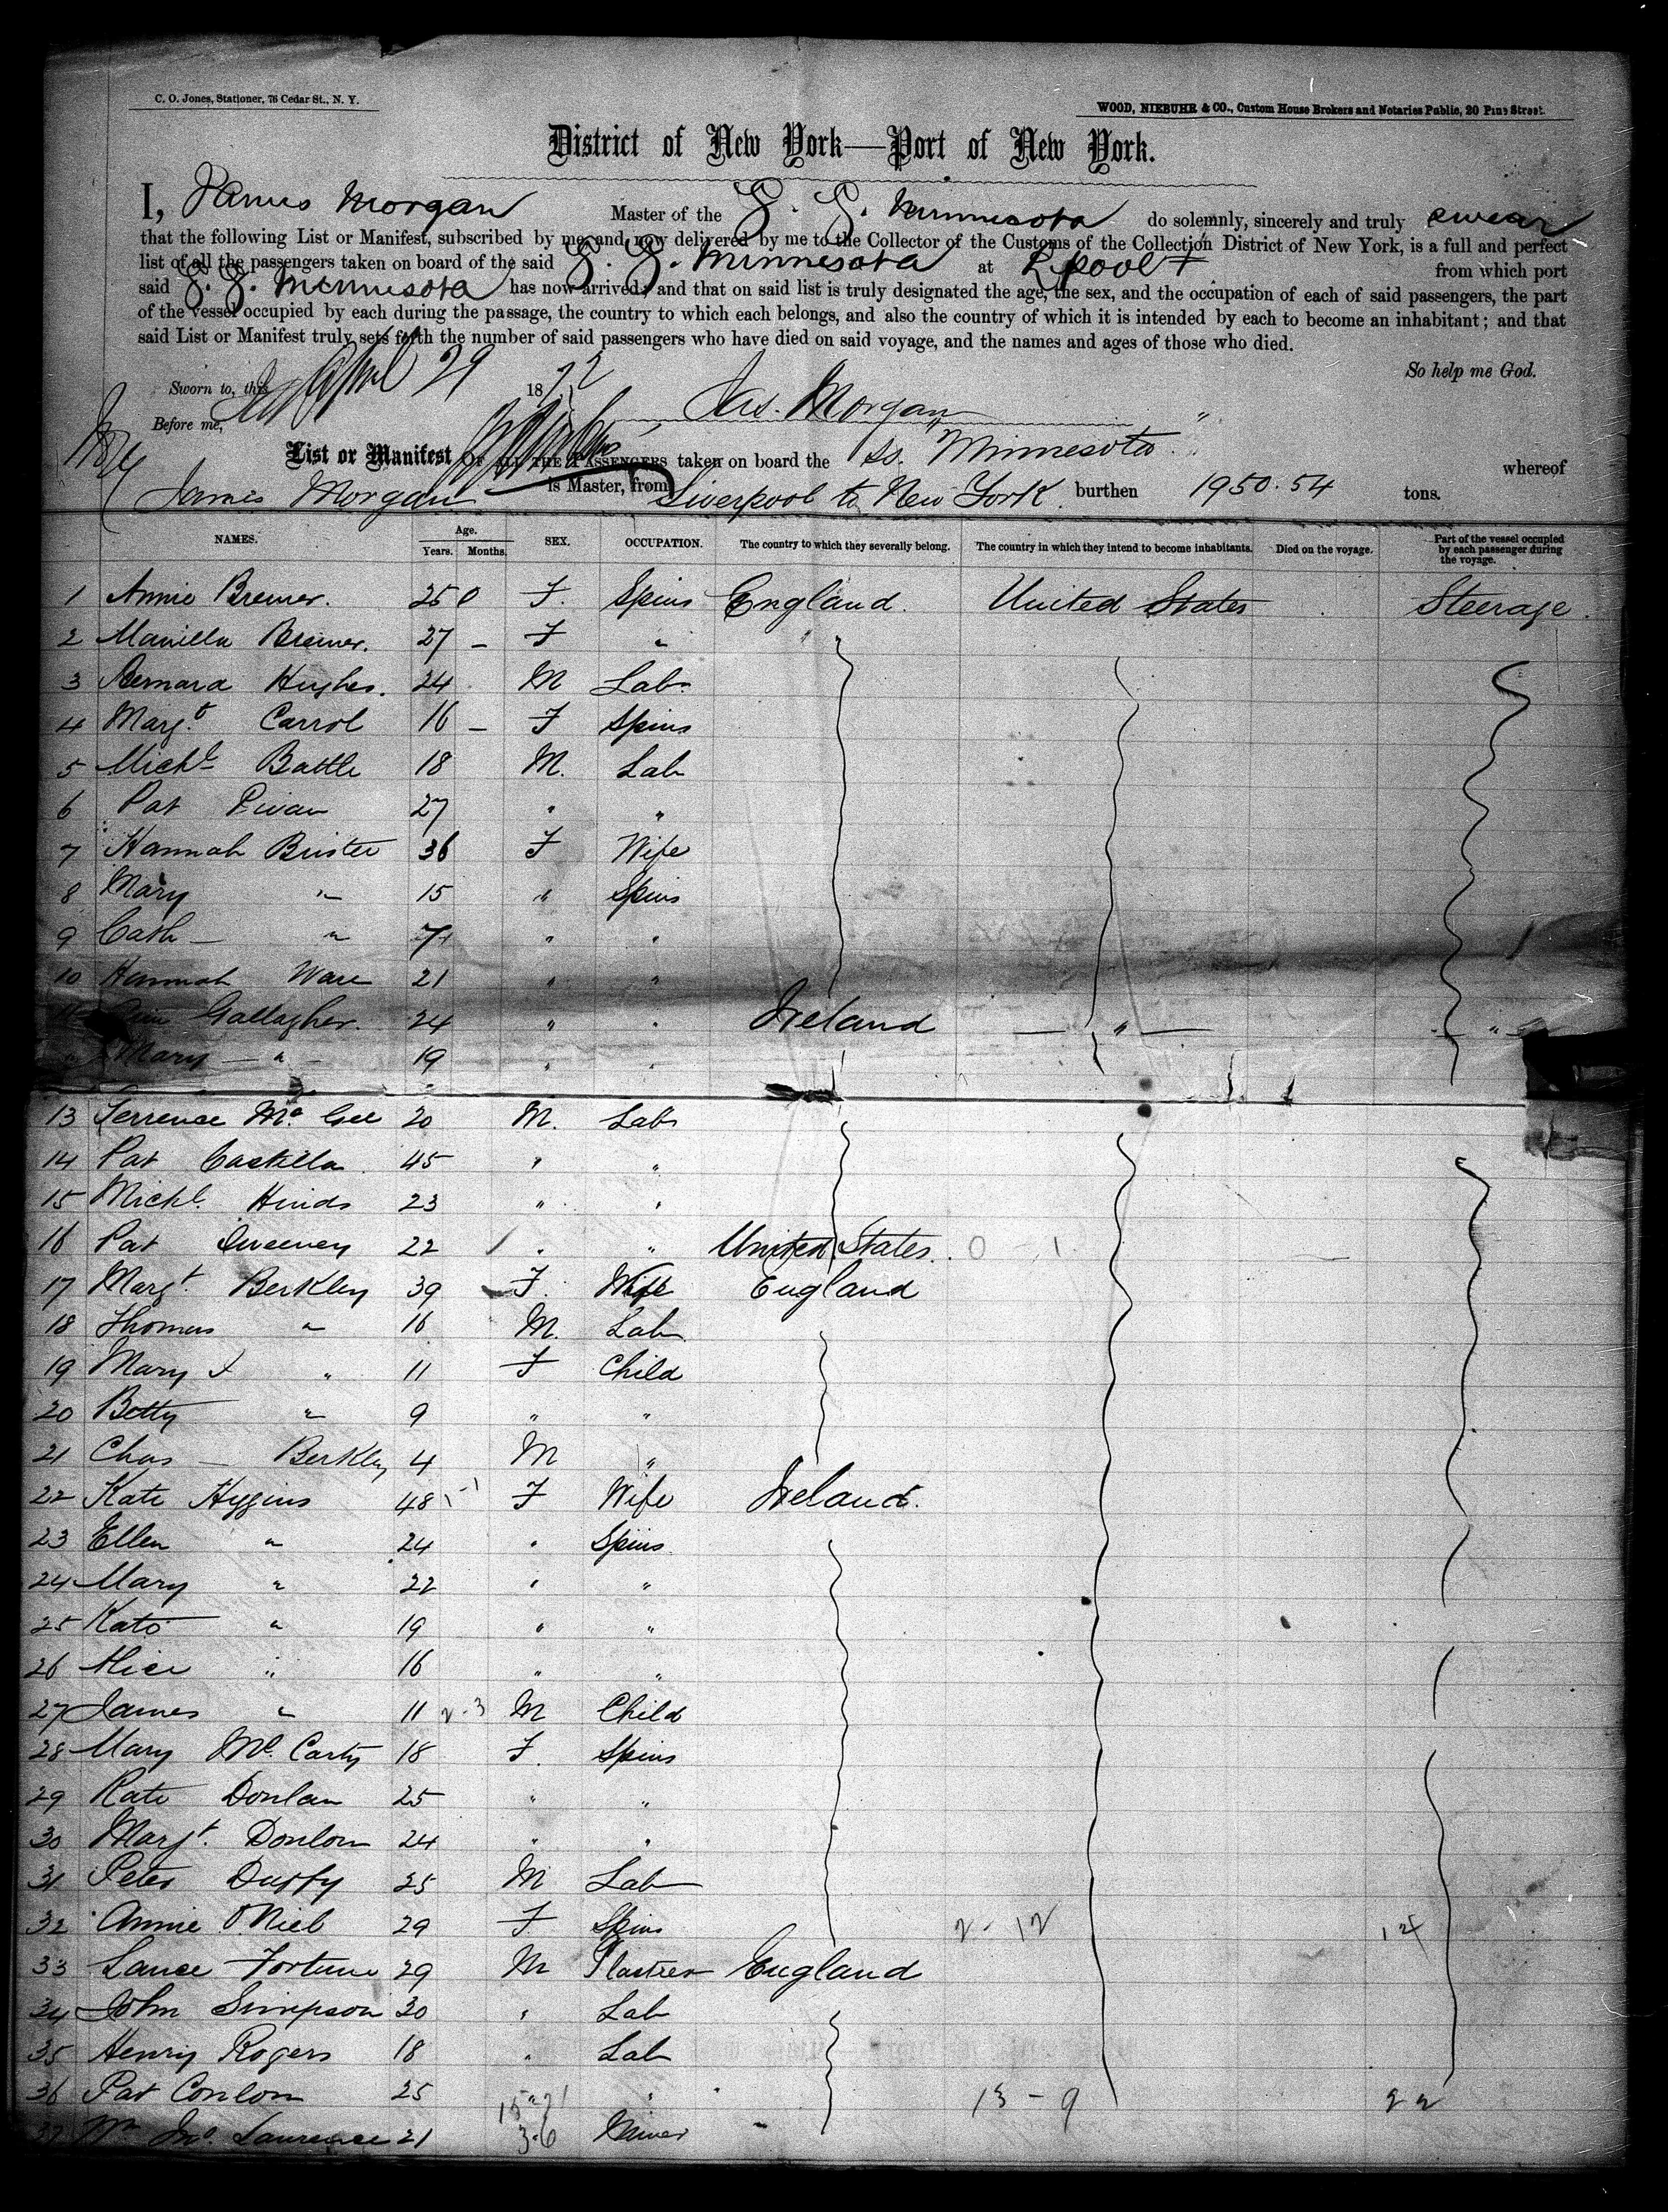 C. O. Jones, Stationer, 76 Cedar St., N. Y.
WOOD, NIEBUHR & CO., Custom House Brokers and Notaries Public, 20 Pine Street.
District of New York—Port of New York.
I, James Morgan Master of the S. S. Minnesota do solemnly, sincerely and truly swear
that the following List or Manifest, subscribed by me, and now delivered by me to the Collector of the Customs of the Collection District of New York, is a full and perfect
list of all the passengers taken on board of the said S. S. Minnesota at L'pool from which port
said S. S. Minnesota has now arrived; and that on said list is truly designated the age, the sex, and the occupation of each of said passengers, the part
of the vessel occupied by each during the passage, the country to which each belongs, and also the country of which it is intended by each to become an inhabitant; and that
said List or Manifest truly sets forth the number of said passengers who have died on said voyage, and the names and ages of those who died.
So help me God.
Sworn to, this April 29 1872
Jas. Morgan
Before me,
List or Manifest OF ALL THE PASSENGERS taken on board the SS. "Minnesota" whereof
James Morgan is Master, from Liverpool to New York. burthen 1950.54 tons.
NAMES. Age. Years. Months. SEX. OCCUPATION. The country to which they severally belong. The country in which they intend to become inhabitants. Died on the voyage. Part of the vessel occupied by each passenger during the voyage.
1 Annie Bremer. 25 F. Spins England. United States Steerage.
2 Bremer. 27 - F "
3 Bernard Hughes. 24 M Lab.
4 Margt. Carrol 16 - F Spins
5 Michl Battle 18 M. Lab
6 Pat 27 " "
7 Hannah 36 F Wife
8 Mary " 15 " Spins
9 Cath - " 7 " "
10 Hannah Ware 21 " "
11 Gallagher. 24 " " Ireland - " - - " -
12 Mary - " - 19 " "
13 Terrence Mc Gee 20 M. Lab
14 Pat 45 " "
15 Michl. Hinds 23 " "
16 Pat Sweeney 22 " " United States. 0 - 1
17 Margt. Berkley 39 F. Wife England
18 Thomas " 16 M. Lab
19 Mary " 11 F Child
20 Betty " 9 " "
21 Chas - Berkley 4 M "
22 Kate Higgins 48 F Wife Ireland.
23 Ellen " 24 " Spins
24 Mary " 22 " "
25 Kate " 19 " "
26 Alice " 16 " "
27 James " 11 2-3 M Child
28 Mary Mc Carty 18 F. Spins
29 Kate Donlan 25 " "
30 Margt. Donlon 24 " "
31 Peter Duffy 25 M Lab
32 Annie O'Niel 29 F Spins 2 - 12 14
33 Lance Fortune 29 M England
34 John Simpson 30 " Lab
35 Henry Rogers 18 " Lab
36 Pat Conlon 25 " 13 - 9 22
37 Wm Jno. Laurence 21 3-6 Miner